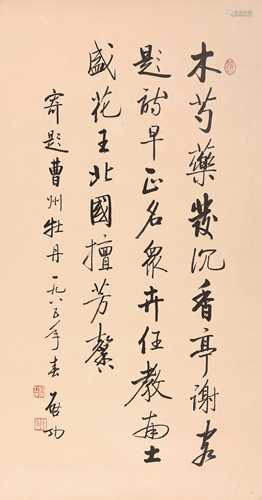 木芍藥發沉香亭謝客
題詩早正名眾卉任教南土
盛花王北國擅芳馨
寄題曹州牡丹一九八五年春 启功